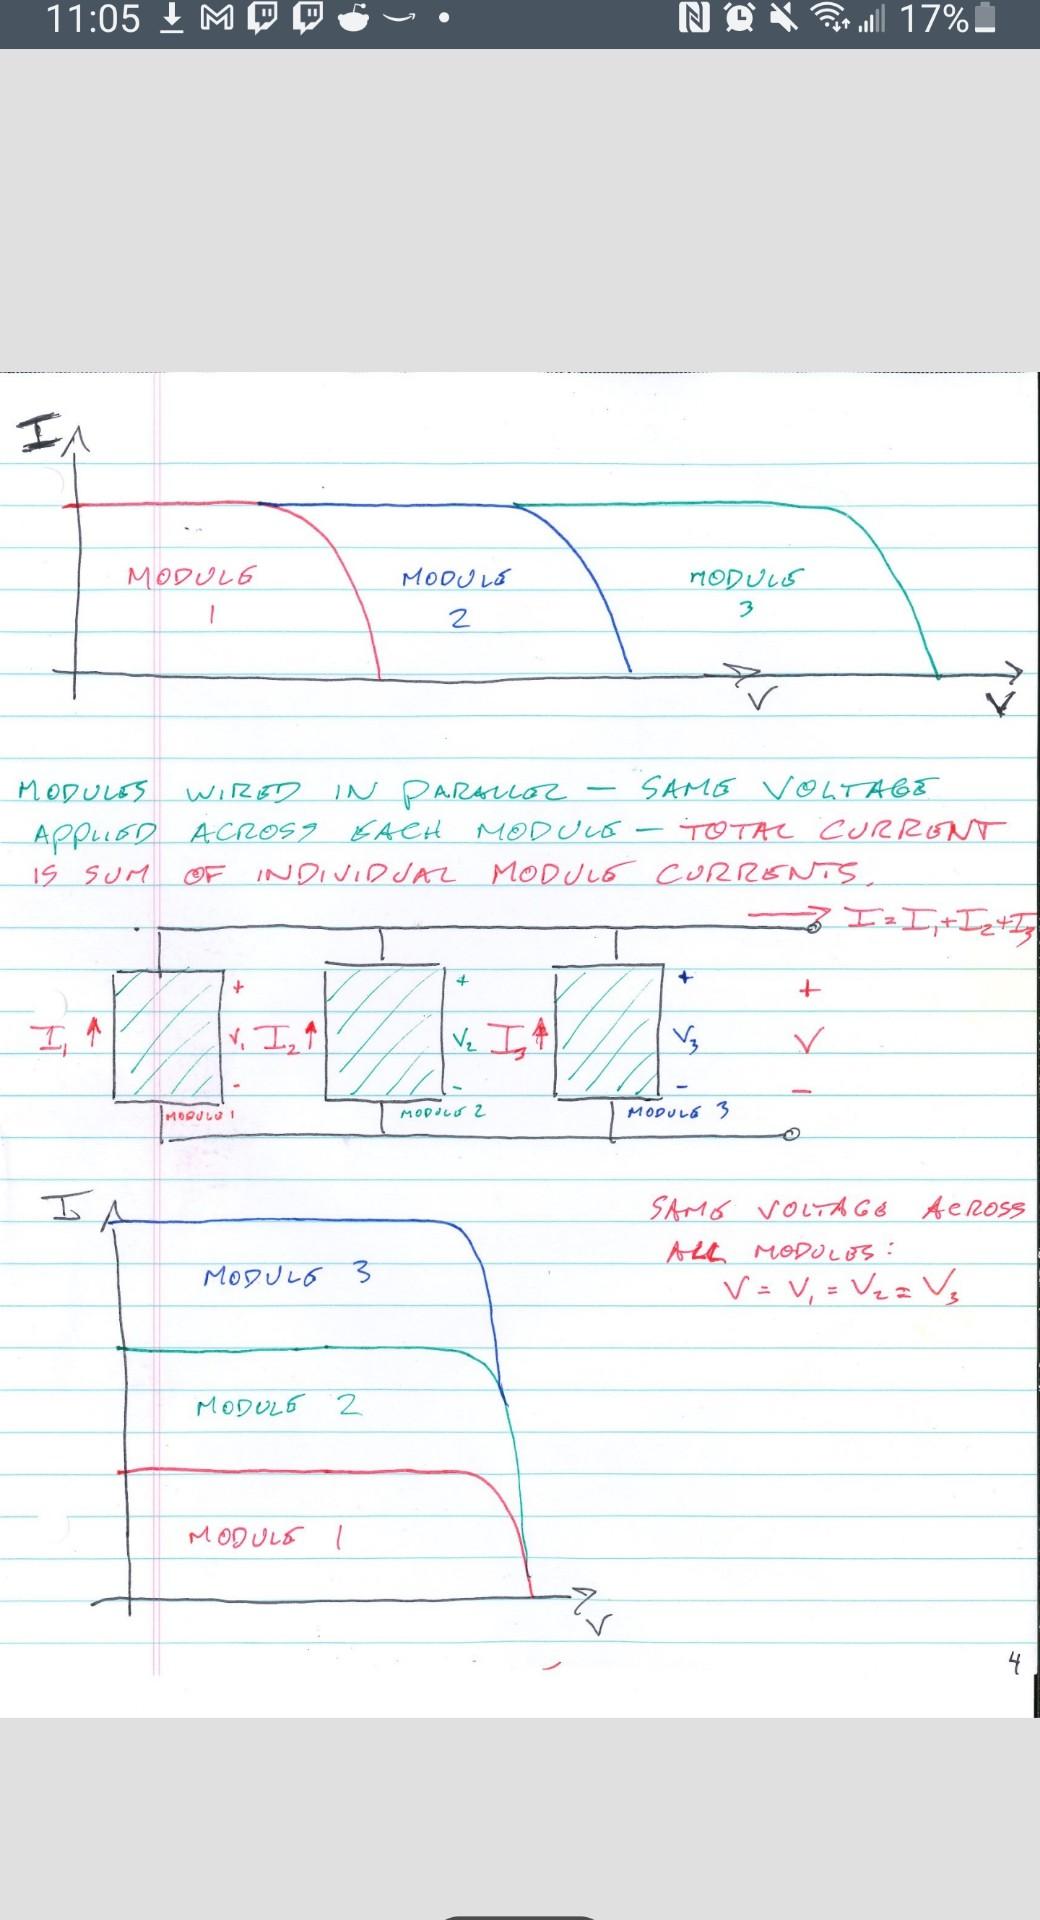 11:05 17%
I
MODULE MODULE MODULE
1 2 3
V V
MODULES WIRED IN PARALLEL — SAME VOLTAGE
APPLIED ACROSS EACH MODULE — TOTAL CURRENT
IS SUM OF INDIVIDUAL MODULE CURRENTS.
I = I₁+I₂+I₃
+ + + +
I₁ V₁ I₂ V₂ I₃ V₃ V
- - - -
MODULE 1 MODULE 2 MODULE 3
I
SAME VOLTAGE ACROSS
ALL MODULES:
V = V₁ = V₂ = V₃
MODULE 3
MODULE 2
MODULE 1
V
4